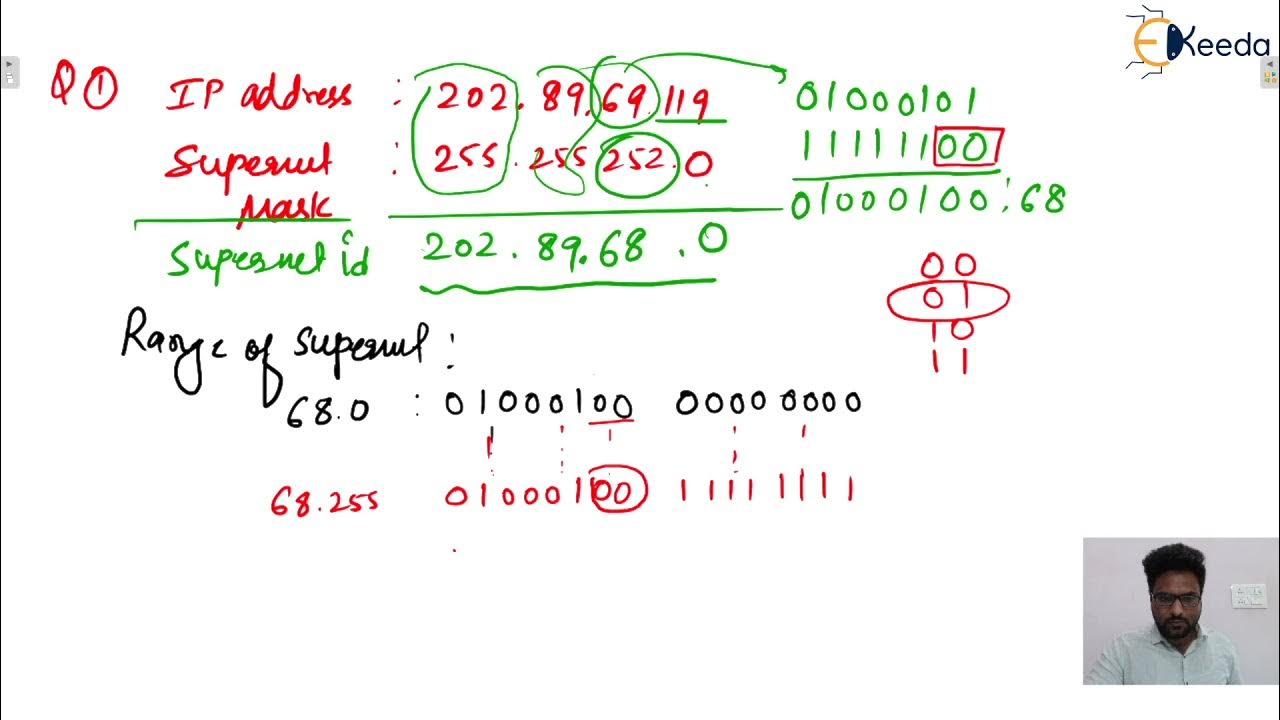 EKeeda
Q ① IP address : 202.89.69.119
01000101
Supernet : 255.255.252.0
11111100
Mask
01000100 : 68
Supernet id 202.89.68.0
00
01
10
11
Range of Supernet :
68.0 : 01000100 00000000
68.255 01000100 11111111